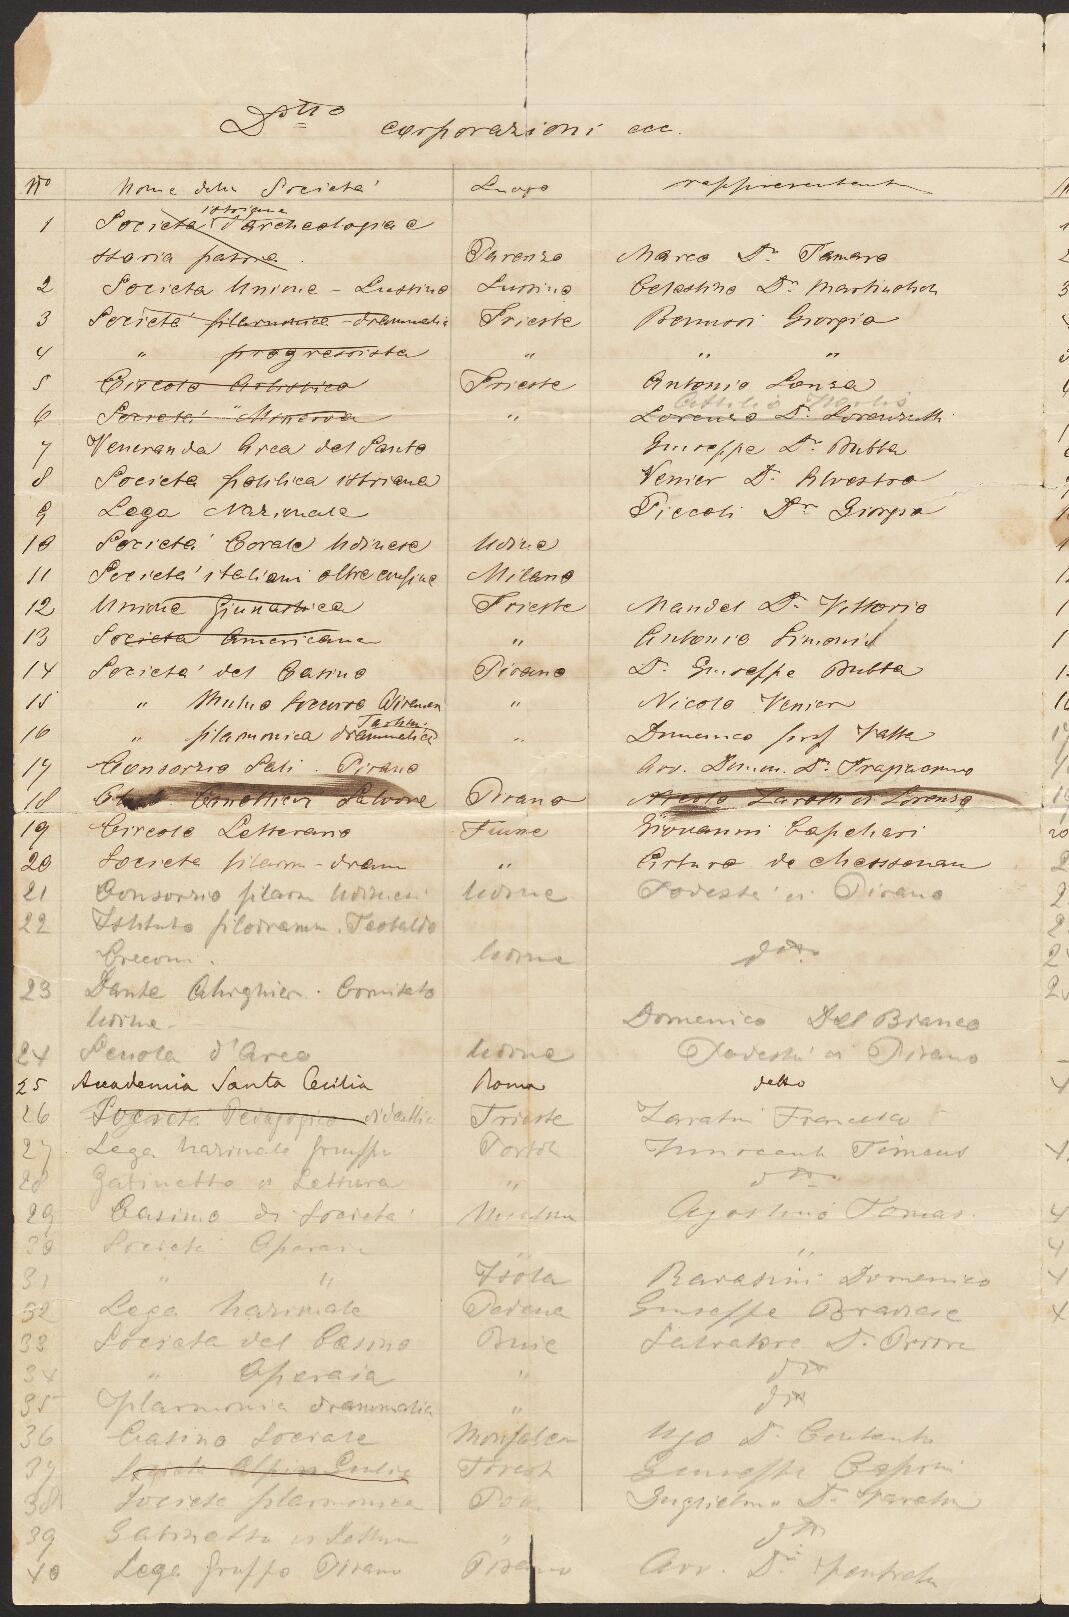 Dtto corporazioni ecc.
No Nome della Società Luogo rappresentante
istriana
1 Società d'archeologia e
storia patria Parenzo Marco Dr Tamaro
2 Società Unione - Lussino Lussino Celestino Dr Martinolich
3 Società filarmonica - drammatica Trieste Giorgio
4 " progressista " " "
5 Circolo Artistico Trieste Antonio Lonza
Attilio
6 Società "Minerva " Lorenzo Dr Lorenzutti
7 Veneranda Arca del Santo Giuseppe Dr Bubba
8 Società politica istriana Venier Dr Silvestro
9 Lega Nazionale Piccoli Dr Giorgio
10 Società Corale Udinese Udine
11 Società italiani oltre confine Milano
12 Unione Ginnastica Trieste Mandel Dr Vittorio
13 Società Americana " Antonio
14 Società del Casino Pirano Dr Giuseppe Bubba
15 " Mutuo Soccorso " Nicolo Venier
Tartini
16 " filarmonica drammatica " Domenico prof Vatta
17 Consorzio Sali . Pirano Avv. Domen. Dr Fragiacomo
18 Club Canottieri Salvore Pirano Nicolo Zarotti di Lorenzo
19 Circolo Letterario Fiume Giovanni
20 Società filarm - dram " Arturo de
21 Consorzio filarm Udinese Udine Podestà di Pirano
22 Istituto filodramm. Teobaldo
Ciconi . Udine dtto
23 Dante Alighieri . Comitato
Udine - Domenico Del Bianco
24 Scuola d'Arco Udine Podestà di Pirano
25 Accademia Santa Cecilia Roma detto
26 Società Pedagogico didattica Trieste Zarattin Francesco
27 Lega Nazionale gruppo Portole Innocente Timeus
28 Gabinetto di Lettura " dtto
29 Casino di Società Agostino Tomasi
30 Società Operaia " "
31 " " Isola Ravasini Domenico
32 Lega Nazionale Pedena Giuseppe
33 Società del Casino Buie Salvatore Dr
34 " Operaia " dtto
35 Filarmonica drammatica " dtto
36 Casino Sociale Monfalcone Ugo Dr
37 Società Alpina Giulie Trieste Giuseppe Caprin
38 Società filarmonica Pola Guglielmo Dr
39 Gabinetto di Lettura " dtto
40 Lega gruppo Pirano Pirano Avv. Dr